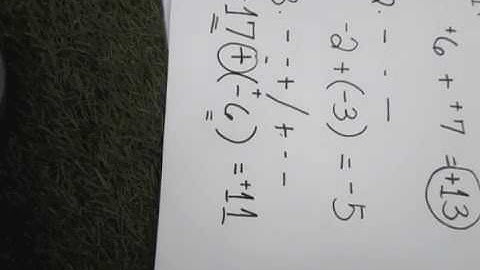 +6 + +7 = +13
2. - . -
-2 + (-3) = -5
3. - - + / + . - -
17 + (-6) = +11